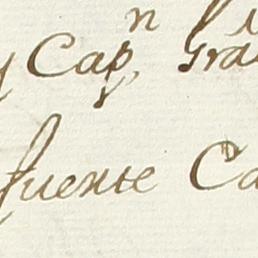 y Capⁿ Gra
fuente Ca